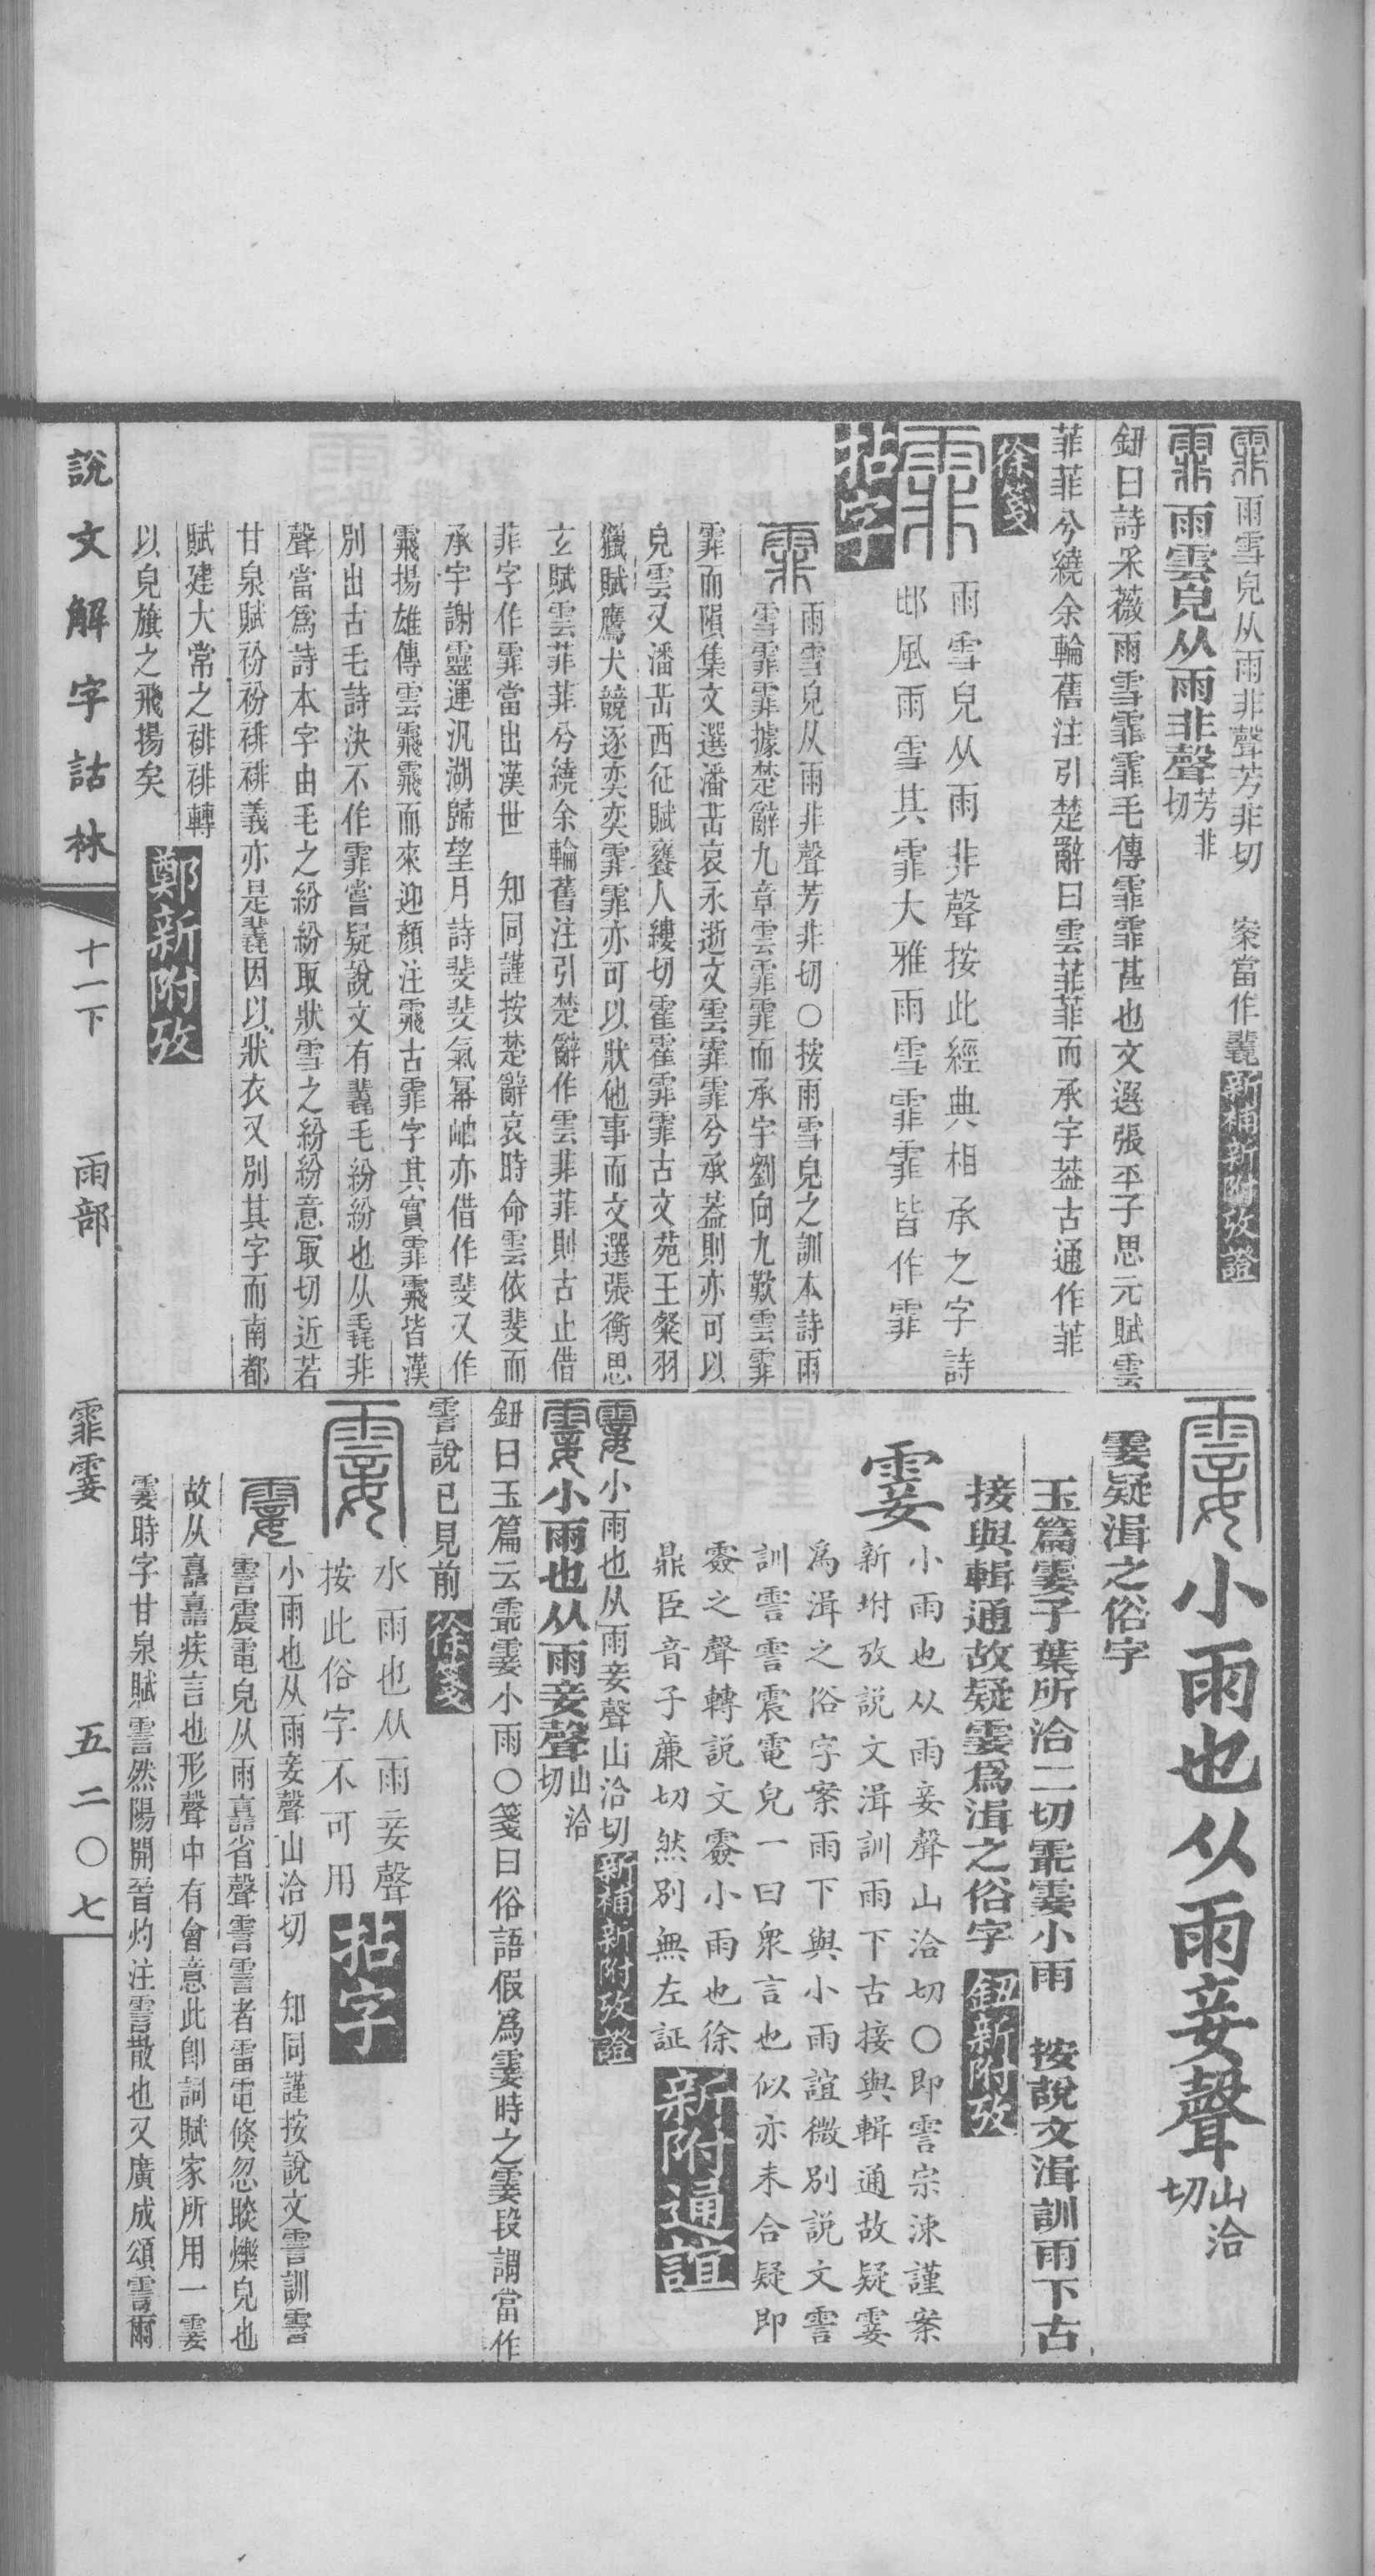 霏雨雪皃从雨非聲芳非切　案當作䨽新補新附攷證
霏雨雲皃从雨非聲芳非切
鈕曰詩采薇雨雪霏霏毛傳霏霏甚也文選張平子思元賦雲
菲菲兮繞余輪舊注引楚辭曰雲菲菲而承宇葢古通作菲
徐箋
霏雨雪皃从雨非聲按此經典相承之字詩
邶風雨雪其霏大雅雨雪霏霏皆作霏
拈字
霏雨雪皃从雨非聲芳非切○按雨雪皃之訓本詩雨
雪霏霏據楚辭九章雲霏霏而承宇劉向九歎雲霏
霏而隕集文選潘岳哀永逝文雲霏霏兮承葢則亦可以
皃雲又潘岳西征賦饔人縷切霍霍霏霏古文苑王粲羽
獵賦鷹犬競逐奕奕霏霏亦可以狀他事而文選張衡思
玄賦雲菲菲兮繞余輪舊注引楚辭作雲菲菲則古止借
菲字作霏當出漢世　知同謹按楚辭哀時命雲依斐而
承宇謝靈運汎湖歸望月詩斐斐氣冪岫亦借作斐又作
䬠揚雄傳雲䬠䬠而來迎顏注䬠古霏字其實霏䬠皆漢
別出古毛詩決不作霏嘗疑說文有毳毛紛紛也从毳非
聲當爲詩本字由毛之紛紛取狀雪之紛紛意㝡切近若
甘泉賦衯衯裶裶義亦是因以狀衣又別其字而南都
賦建大常之裶裶轉
以皃旗之飛揚矣
鄭新附攷
霎小雨也从雨妾聲山洽切
霎疑湒之俗字
玉篇霎子葉所洽二切霎小雨　按說文湒訓雨下古
接與輯通故疑霎爲湒之俗字鈕新附攷
霎小雨也从雨妾聲山洽切○即霅宗涑謹案
新坿攷說文湒訓雨下古接與輯通故疑霎
爲湒之俗字案雨下與小雨誼微別說文霅
訓霅霅震電皃一曰眾言也似亦未合疑即
霝之聲轉說文小雨也徐
鼎臣音子廉切然別無左証
新附通誼
霎小雨也从雨妾聲山洽切新補新附攷證
霎小雨也从雨妾聲山洽切
鈕曰玉篇云霎小雨○箋曰俗語假爲霎時之霎段謂當作
霅說已見前徐箋
霎水雨也从雨妾聲
按此俗字不可用
拈字
霎小雨也从雨妾聲山洽切　知同謹按說文霅訓霅
霅震電皃从雨譶省聲霅霅者雷電倏忽睒爍皃也
故从譶譶疾言也形聲中有會意此卽詞賦家所用一霎
霎時字甘泉賦霅然陽開晉灼注霅散也又廣成頌霅爾
說文解字詁林
十一下　雨部
霏霎
五二〇七